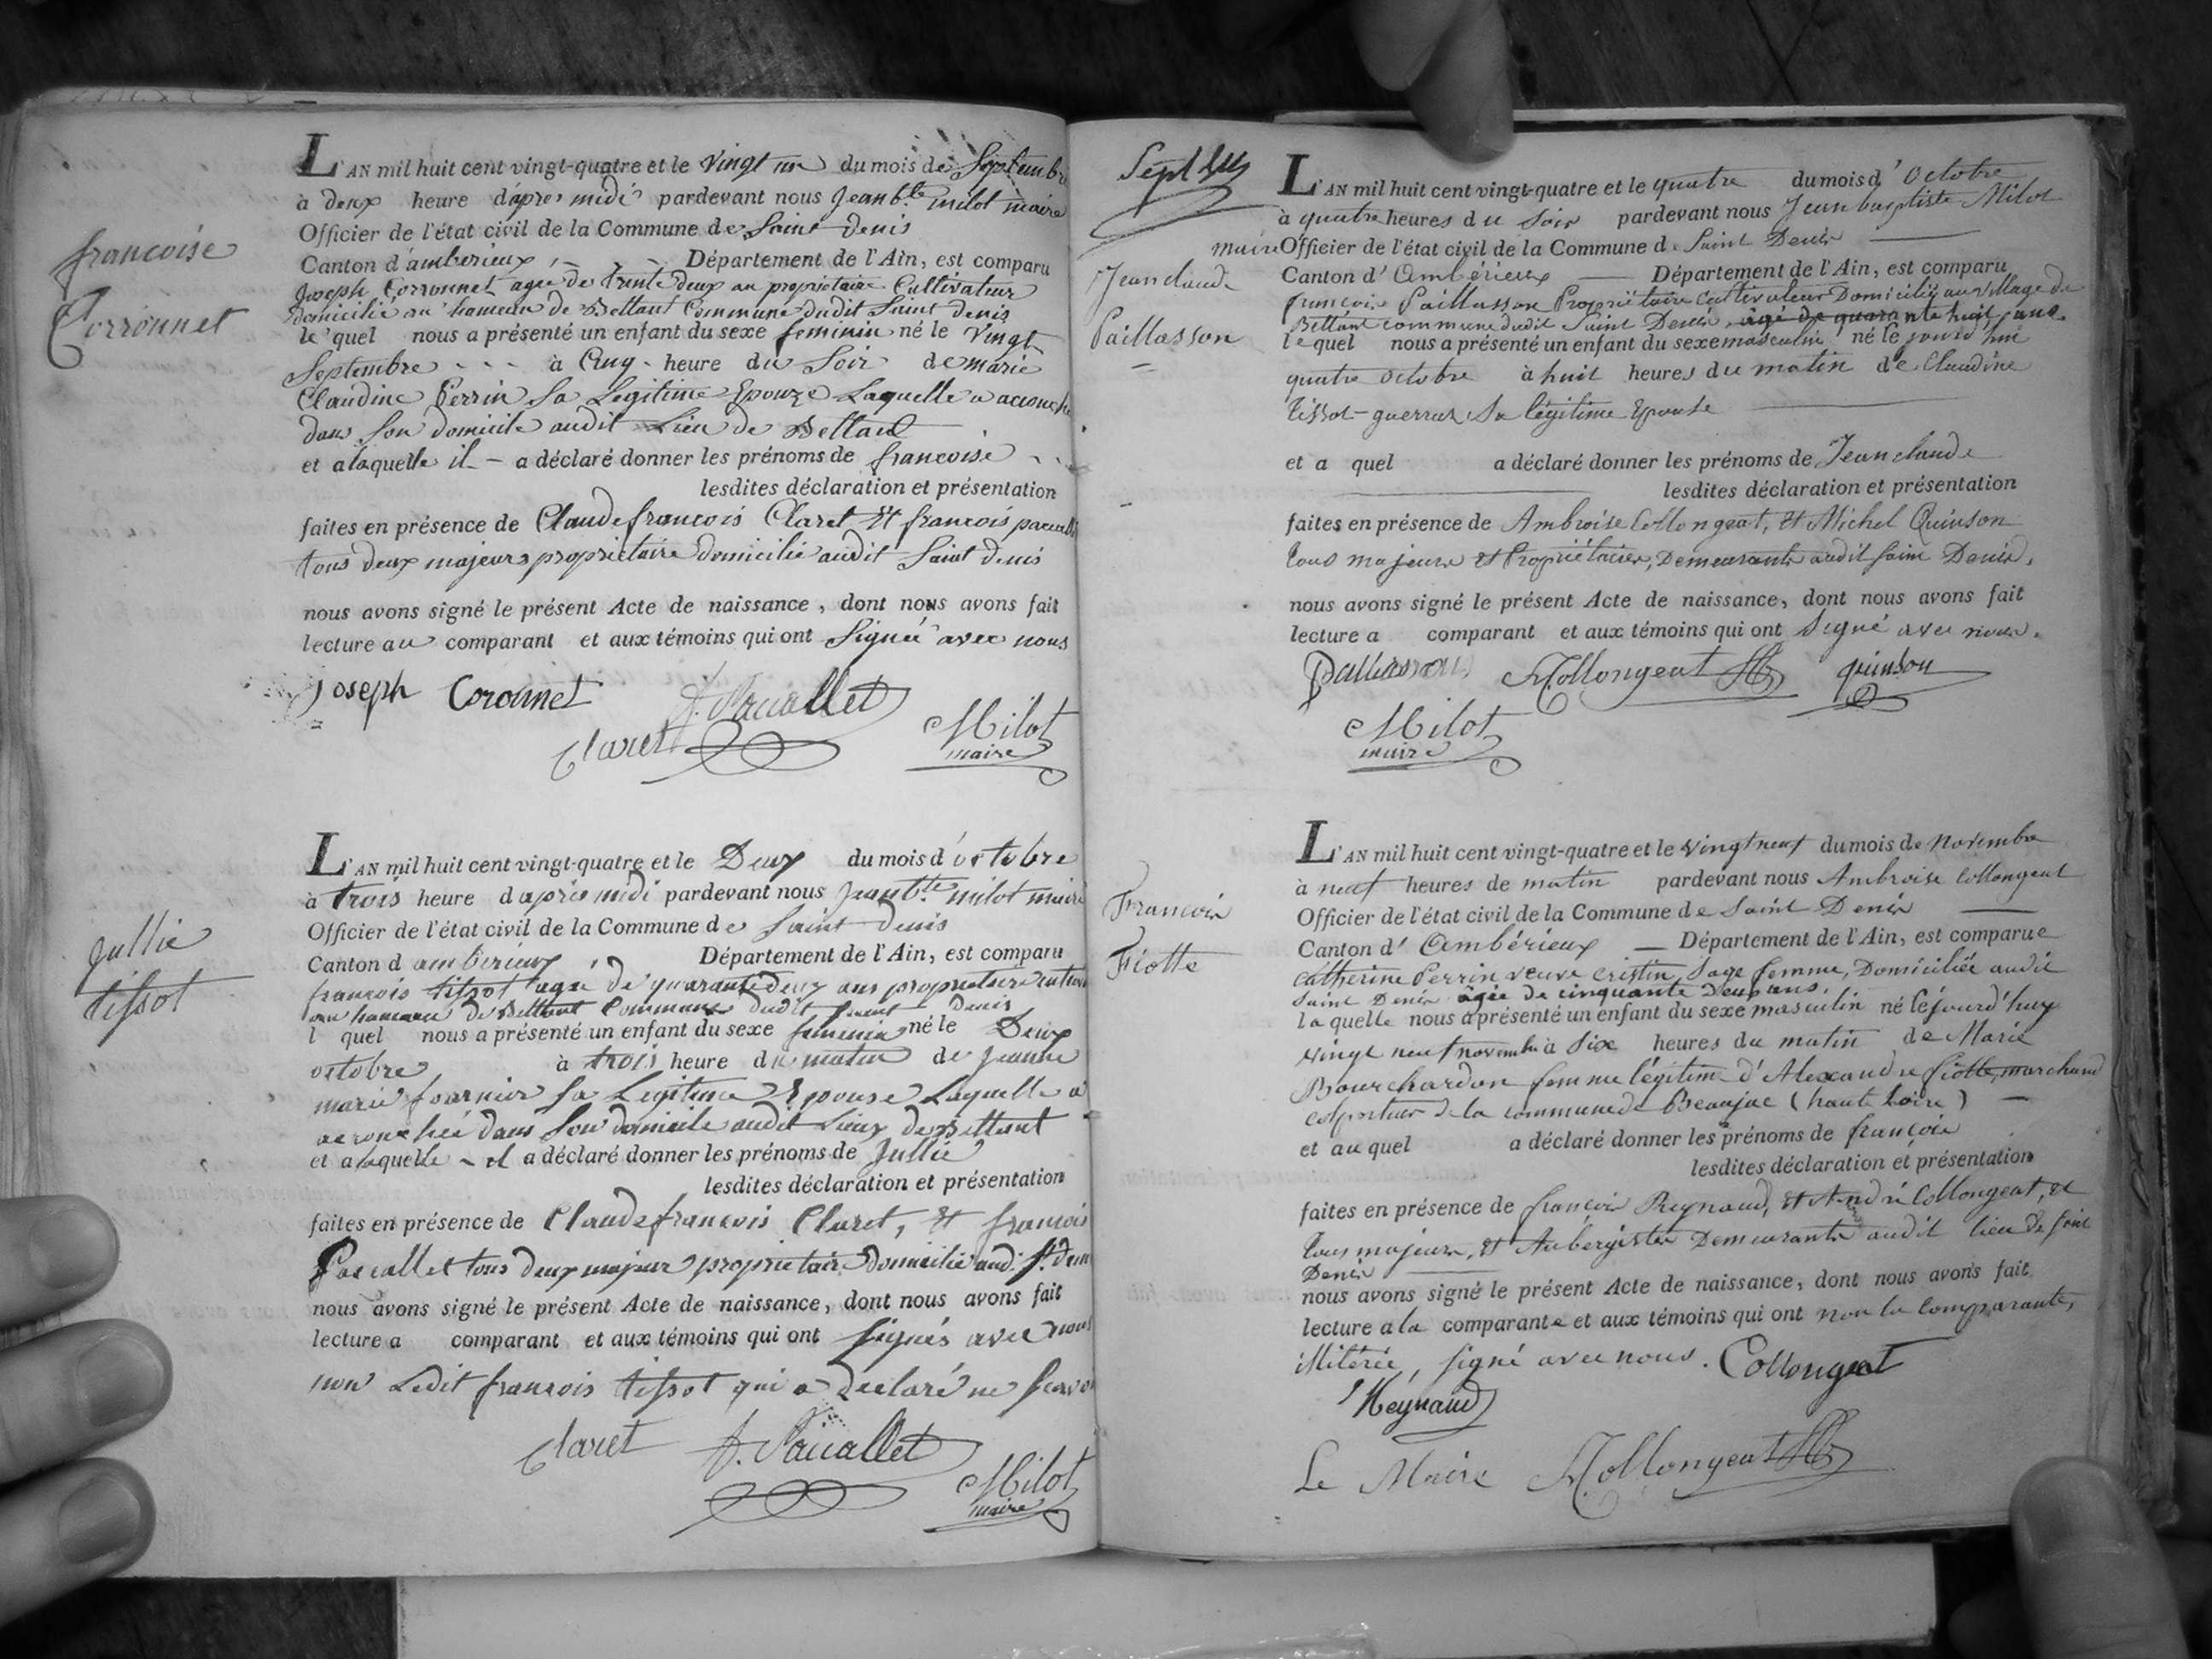 francoise
Corronnet
L'AN mil huit cent vingt-quatre et le vingt un du mois de Septembre
à deux heure d'apres midi pardevant nous Jean b.te milot maire
Officier de l'état civil de la Commune de Saint denis
Canton d'amberieux Département de l'Ain, est comparu
Joseph Corronnet agee de trente deux an proprietaire Cultivateur
domicilie au hameau de Bettant Commune dudit Saint denis
le quel nous a présenté un enfant du sexe feminin né le vingt
Septembre à Cinq heure du Soir de marie
Claudine Perrin Sa Legitime Epouze Laquelle a accouche
dans Son domicile audit Lieu de Bettant
et a laquelle il a déclaré donner les prénoms de francoise
lesdites déclaration et présentation
faites en présence de Claude francois Claret Et francois pacalle
tous deux majeurs proprietaire domicilie audit Saint denis
nous avons signé le présent Acte de naissance, dont nous avons fait
lecture au comparant et aux témoins qui ont Signée avec nous
Joseph Coronnet
Claret
Milot
maire
jullie
tissot
L'AN mil huit cent vingt-quatre et le Deux du mois d'octobre
à trois heure d'après midi pardevant nous jean b.te milot maire
Officier de l'état civil de la Commune de Saint denis
Canton d amberieux Département de l'Ain, est comparu
francois tissot agee de quarante deux ans proprietaire
au hameau de Bettant Commune dudit Saint Denis
l quel nous a présenté un enfant du sexe feminin né le Deux
octobre à trois heure du matin de jeanne
marie fournier Sa Legitime Epouse Laquelle a
accouchée dans Son domicile audit Lieux de Bettant
et a laquelle il a déclaré donner les prénoms de Jullie
lesdites déclaration et présentation
faites en présence de Claude francois Claret, Et francois
Pacallet tous deux majeur proprietaire domicilie aud. St. denis
nous avons signé le présent Acte de naissance, dont nous avons fait
lecture a comparant et aux témoins qui ont signés avec nous
non Ledit francois tissot qui a declaré ne
Claret
Milot
maire
Jean claude
Paillasson
L'AN mil huit cent vingt-quatre et le quatre du mois d'Octobre
à quatre heures du soir pardevant nous Jean baptiste Milot
maire Officier de l'état civil de la Commune de Saint Denis
Canton d'Ambérieux Département de l'Ain, est comparu
françois Paillasson Propriétaire Cultivateur Domicilié au village de
Bettant commune dudit Saint Denis, âgé de quarante huit ans.
le quel nous a présenté un enfant du sexe masculin né le jourd'hui
quatre octobre à huit heures du matin de Claudine
tissot-guerraz Sa légitime Epouse
et a quel a déclaré donner les prénoms de Jean claude
lesdites déclaration et présentation
faites en présence de Ambroise Collongeat, Et Michel Quinson
tous majeurs Et Propriétaires, Demeurants audit Saint Denis.
nous avons signé le présent Acte de naissance, dont nous avons fait
lecture a comparant et aux témoins qui ont Signé avec nous.
Paillasson Collongeat quinson
Milot
maire
Francois
Fiotte
L'AN mil huit cent vingt-quatre et le vingt neuf du mois de Novembre
à neuf heures de matin pardevant nous Ambroise Collongeat
Officier de l'état civil de la Commune de Saint Denis
Canton d'Ambérieux Département de l'Ain, est comparue
Catherine Perrin veuve Cristin, Sage femme, Domiciliée audit
Saint Denis âgée de cinquante deux ans.
laquelle nous a présenté un enfant du sexe masculin né le jourd'huy
vingt neuf novembre à Six heures du matin de Marie
Bourchardon femme légitime d'Alexandre fiotte, marchand
colporteur de la commune de Beaujac (haute Loire)
et au quel a déclaré donner les prénoms de françois
lesdites déclaration et présentation
faites en présence de françois Reynaud, Et André Collongeat, Et
tous majeurs, Et Aubergistes Demeurants audit lieu de Saint
Denis
nous avons signé le présent Acte de naissance, dont nous avons fait
lecture a la comparante et aux témoins qui ont non la Comparante,
illitérée, signé avec nous. Collongeat
Reynaud
Le Maire Collongeat